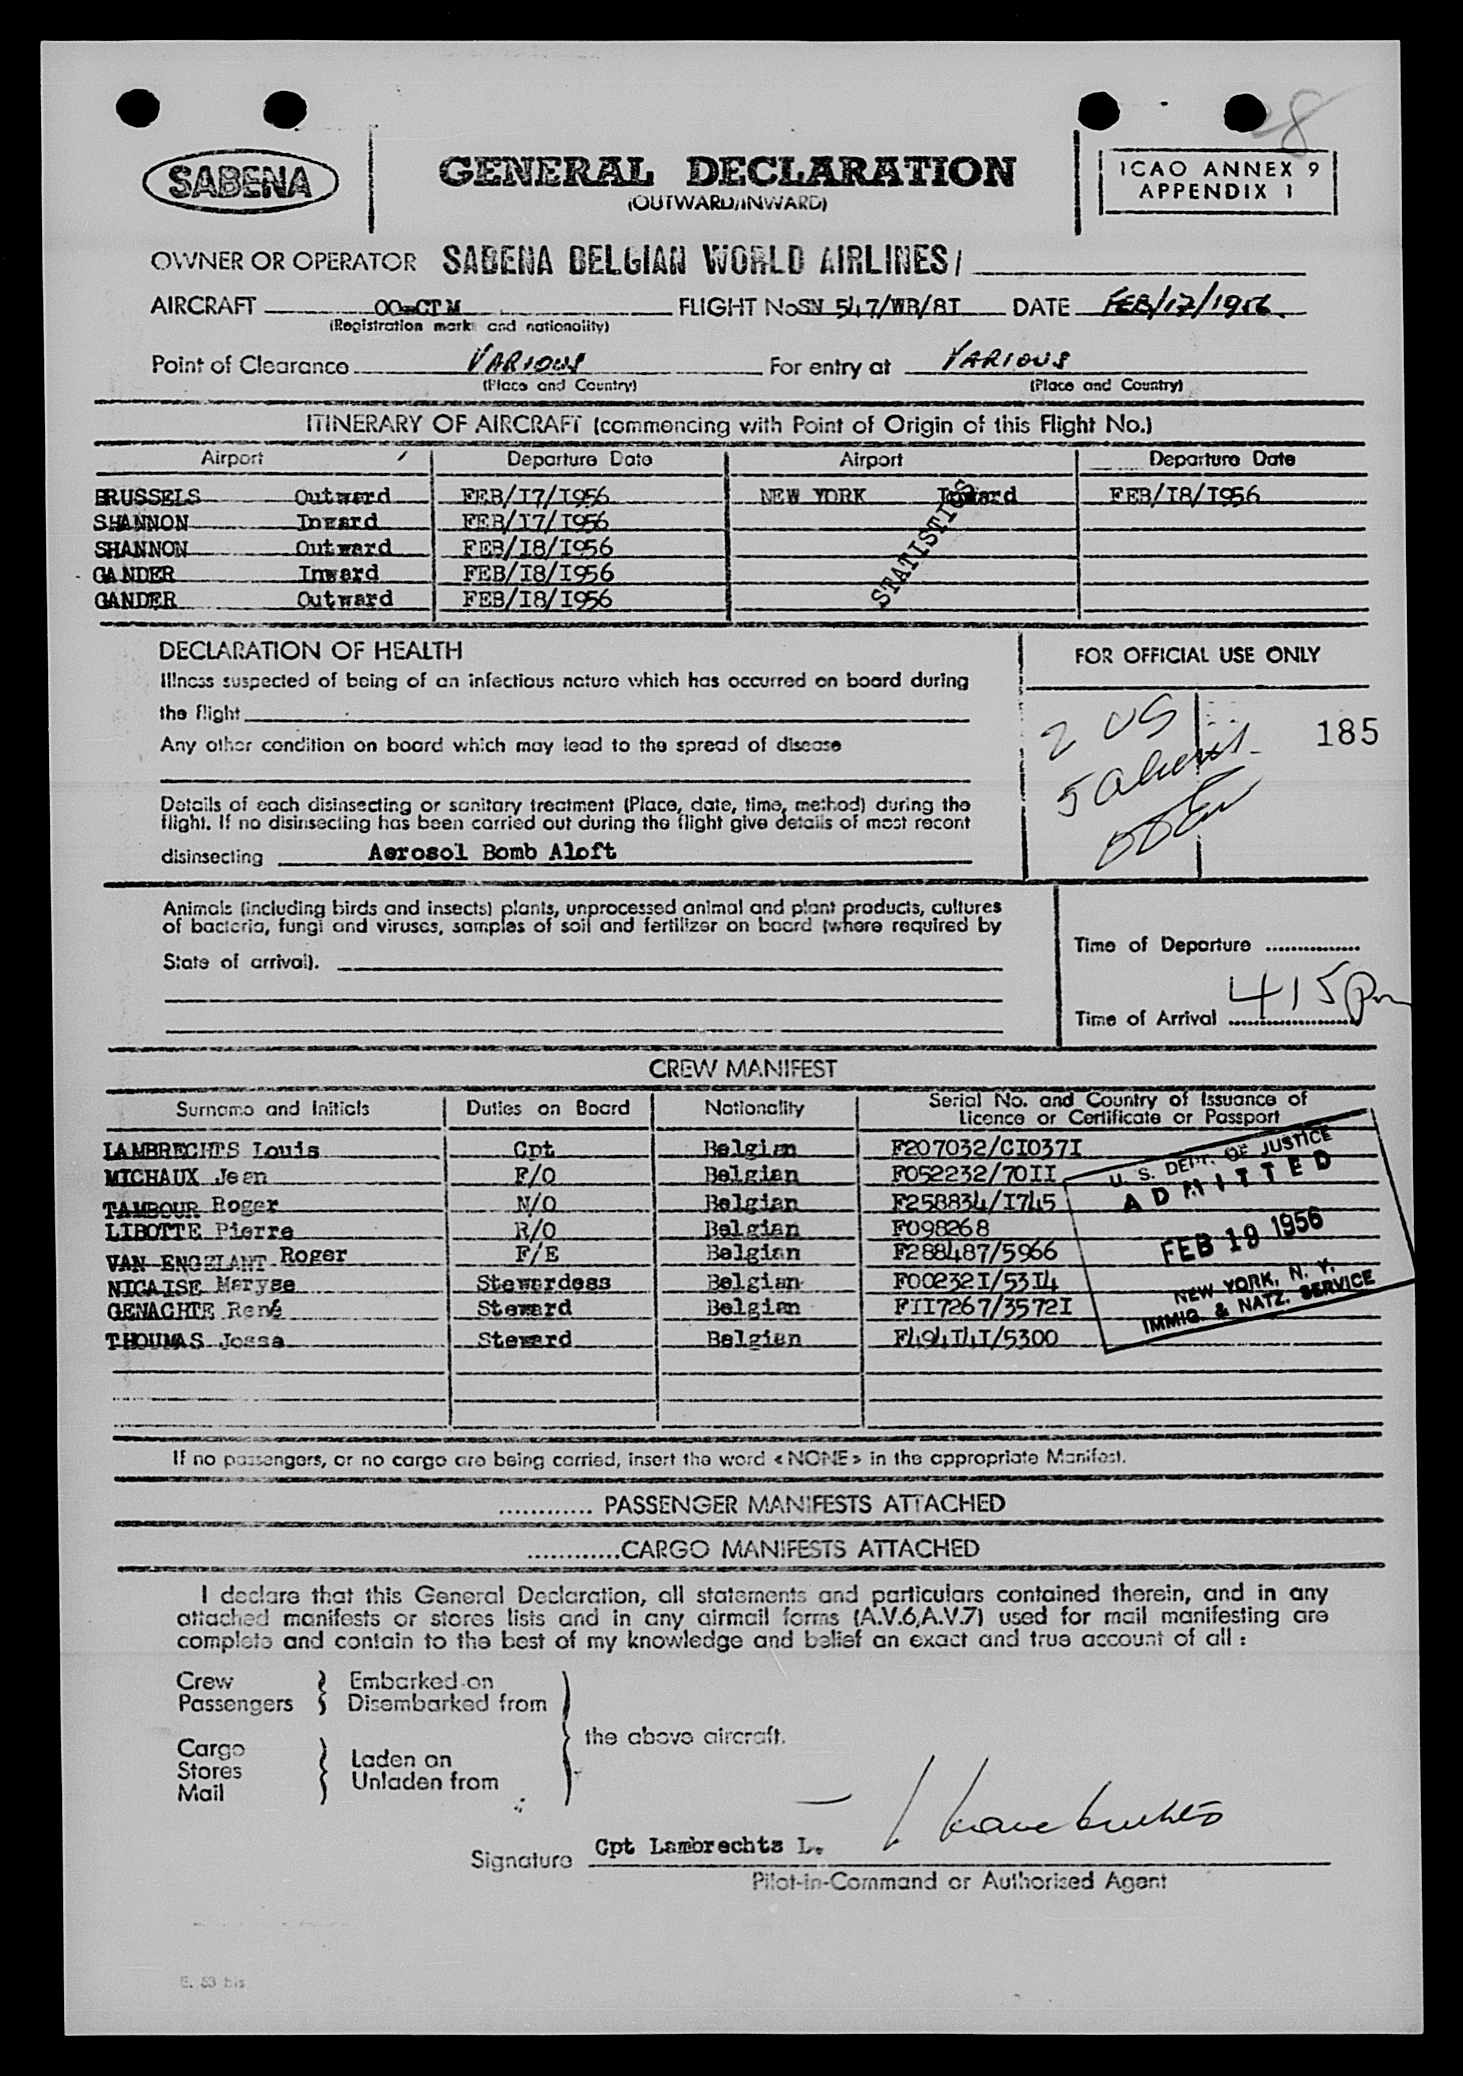 8
SABENA
GENERAL DECLARATION
(OUTWARD/INWARD)
ICAO ANNEX 9
APPENDIX 1
OWNER OR OPERATOR SABENA BELGIAN WORLD AIRLINES/
AIRCRAFT OO-CTM FLIGHT No SN 547/WB/8I DATE FEB/17/1956.
(Registration marks and nationality)
Point of Clearance VARIOUS For entry at VARIOUS
(Place and Country) (Place and Country)
ITINERARY OF AIRCRAFT (commencing with Point of Origin of this Flight No.)
Airport Departure Date Airport Departure Date
BRUSSELS Outward FEB/I7/I956 NEW YORK Inward FEB/I8/I956
SHANNON Inward FEB/I7/I956
SHANNON Outward FEB/I8/I956
GANDER Inward FEB/I8/I956
GANDER Outward FEB/I8/I956
STATISTICS
DECLARATION OF HEALTH
Illness suspected of being of an infectious nature which has occurred on board during
the flight
Any other condition on board which may lead to the spread of disease
Details of each disinsecting or sanitary treatment (Place, date, time, method) during the
flight. If no disinsecting has been carried out during the flight give details of most recent
disinsecting Aerosol Bomb Aloft
FOR OFFICIAL USE ONLY
2 US
5 aliens
185
Animals (including birds and insects) plants, unprocessed animal and plant products, cultures
of bacteria, fungi and viruses, samples of soil and fertilizer on board (where required by
State of arrival).
Time of Departure ...............
Time of Arrival 415pm
CREW MANIFEST
Surname and Initials Duties on Board Nationality Serial No. and Country of Issuance of
Licence or Certificate or Passport
LAMBRECHTS Louis Cpt Belgian F207032/CI037I
MICHAUX Jean F/O Belgian F052232/70II
TAMBOUR Roger N/O Belgian F258834/I745
LIBOTTE Pierre R/O Belgian F098268
VAN ENGELANT Roger F/E Belgian F288487/5966
NICAISE Maryse Stewardess Belgian F00232I/53I4
GENACHTE René Steward Belgian FII7267/3572I
THOUMAS Josse Steward Belgian F494I4I/5300
U. S. DEPT. OF JUSTICE
ADMITTED
FEB 19 1956
NEW YORK, N. Y.
IMMIG. & NATZ. SERVICE
If no passengers, or no cargo are being carried, insert the word «NONE» in the appropriate Manifest.
............ PASSENGER MANIFESTS ATTACHED
............CARGO MANIFESTS ATTACHED
I declare that this General Declaration, all statements and particulars contained therein, and in any
attached manifests or stores lists and in any airmail forms (A.V.6,A.V.7) used for mail manifesting are
complete and contain to the best of my knowledge and belief an exact and true account of all :
Crew Embarked on
Passengers Disembarked from
the above aircraft.
Cargo
Stores Laden on
Mail Unladen from
Signature Cpt Lambrechts L. L Lambrechts
Pilot-in-Command or Authorised Agent
E. 53 bis